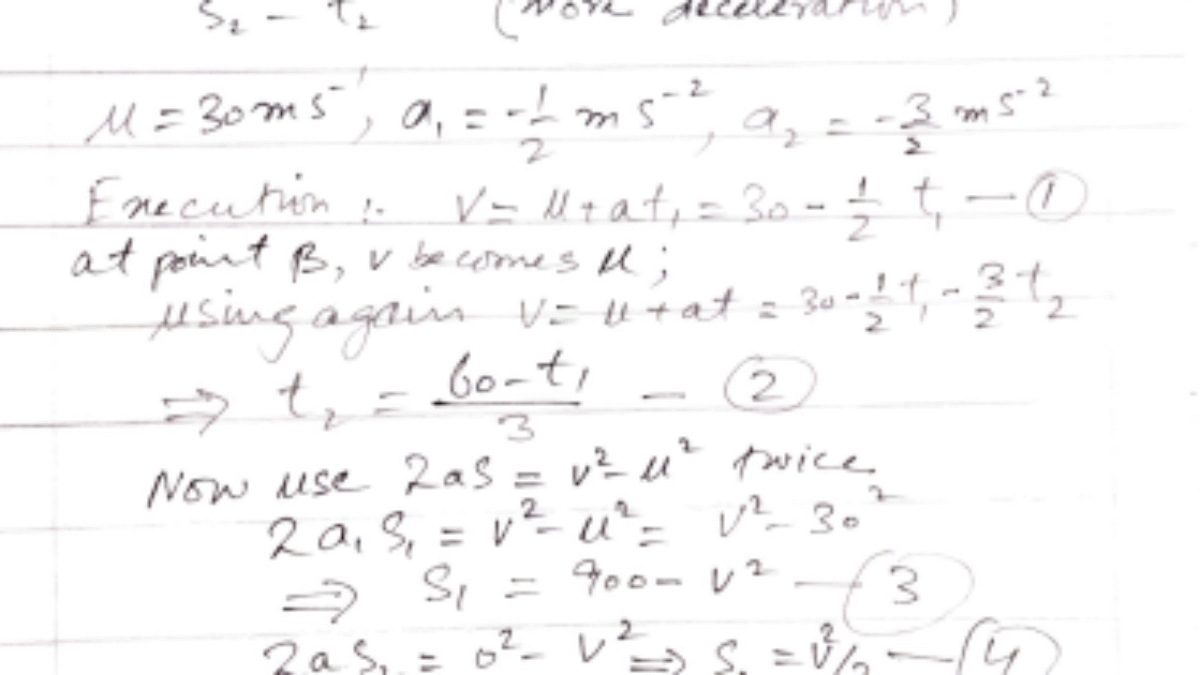 S₂ - t₂ (more deceleration)
u = 30 m s⁻¹, a₁ = -1/2 m s⁻², a₂ = -3/2 m s⁻²
Execution :- v = u + at₁ = 30 - 1/2 t₁ — ①
at point B, v becomes u ;
using again v = u + at = 30 - 1/2 t₁ - 3/2 t₂
⇒ t₂ = 60 - t₁ / 3 — ②
Now use 2aS = v² - u² twice
2a₁S₁ = v² - u² = v² - 30²
⇒ S₁ = 900 - v² — ③
2aS₂ = 0² - v² ⇒ S₂ = v²/3 — ④